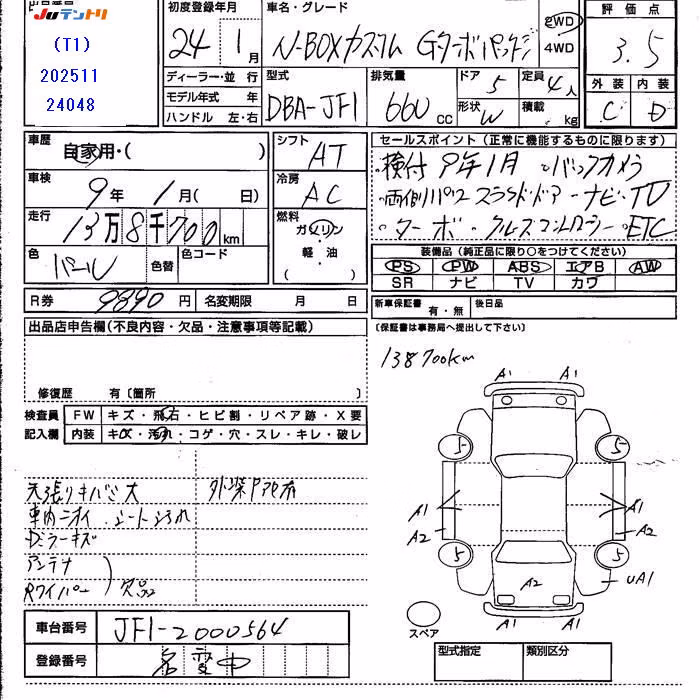 出品番号
Juテントリ
(T1)
202511
24048
初度登録年月
24年 1月
車名・グレード
N-BOXカスタム Gターボパッケージ
2WD
4WD
評価点
3.5
外装 内装
C D
ディーラー・並行
モデル年式 年
ハンドル 左・右
型式
DBA-JF1
排気量
660 cc
ドア 5
形状 W
定員 4人
積載 kg
車歴
自家用・( )
車検
9年 1月( 日)
走行
13万8千700km
色
パール
色替
色コード
シフト
AT
冷房
AC
燃料
ガソリン
・
軽油
( )
セールスポイント(正常に機能するものに限ります)
・検付 9年1月 ・バックカメラ
・両側パワースライドドア ・ナビ・TV
・ターボ ・クルーズコントロラー ・ETC
装備品(純正品に限り○をつけてください)
PS PW ABS エアB AW
SR ナビ TV カワ
R券 9890円 名変期限 月 日
新車保証書 有・無 後日品
(保証書は事務局へ提出して下さい)
出品店申告欄(不良内容・欠品・注意事項等記載)
修復歴 有〔箇所 〕
138700km
検査員記入欄
FW キズ・飛石・ヒビ割・リペア跡・X要
内装 キズ・汚れ・コゲ・穴・スレ・キレ・破レ
天張りキバミ大
外装
車内ニオイ シート汚れ
Dミラーキズ
アンテナ
Rワイパー 欠品
A1 A1
5 5
A1 A1
A2 A2
5 5
A2
UA1
A1 A1
スペア
車台番号 JF1-2000564
登録番号 名変中
型式指定 類別区分